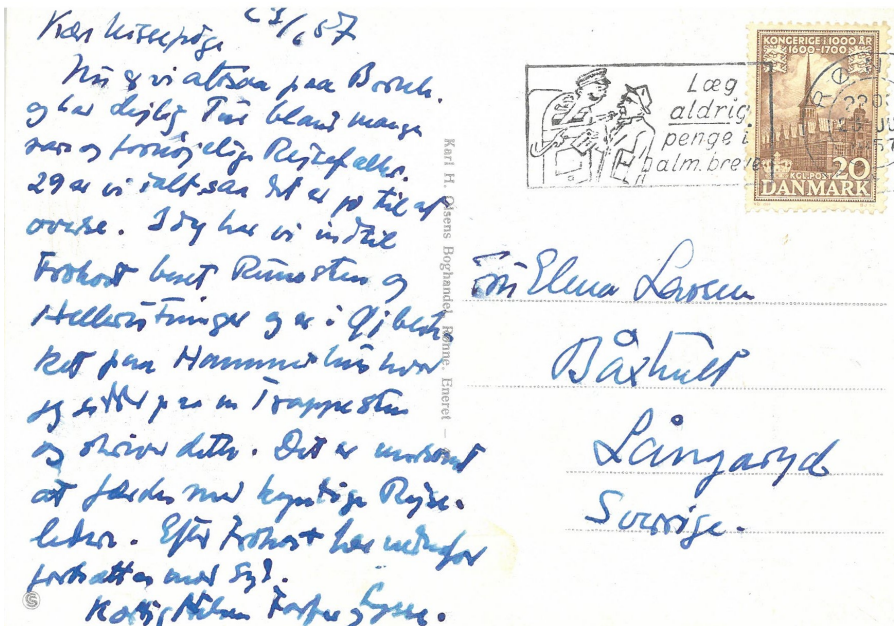 Nu er vi altsaa paa Bornh.
og har dejlig Tur blandt mange
rare og fornøjelige Rejsefæller.
29 er vi ialt saa det er jo til at
overse. I dag har vi indtil
Frokost beset Runesten og
Helleristninger og er i
paa Hammershus hvor
jeg sidder paa en Trappesten
og skriver dette. Det er morsomt
at færdes med kyndige Rejse-
ledere. Efter Frokost har vi
fortsættes mod Syd.
Kærlig Hilsen Farfar og
Karl H. Olsens Boghandel, Rønne. Eneret
Læg
aldrig
penge i
alm. breve
KONGERIGE I 1000 ÅR
1600-1700
KGL. POST 20
DANMARK
Fru Elena Larsen
Båxhult
Långaryd
Sverrige.